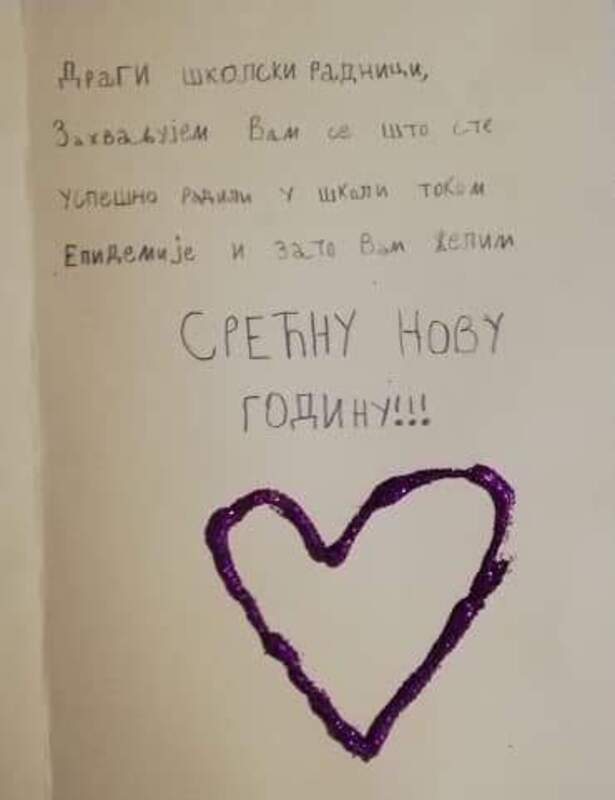 Драги школски радници,
Захваљујем Вам се што сте
успешно радили у школи током
Епидемије и зато Вам желим
СРЕЋНУ НОВУ
ГОДИНУ!!!